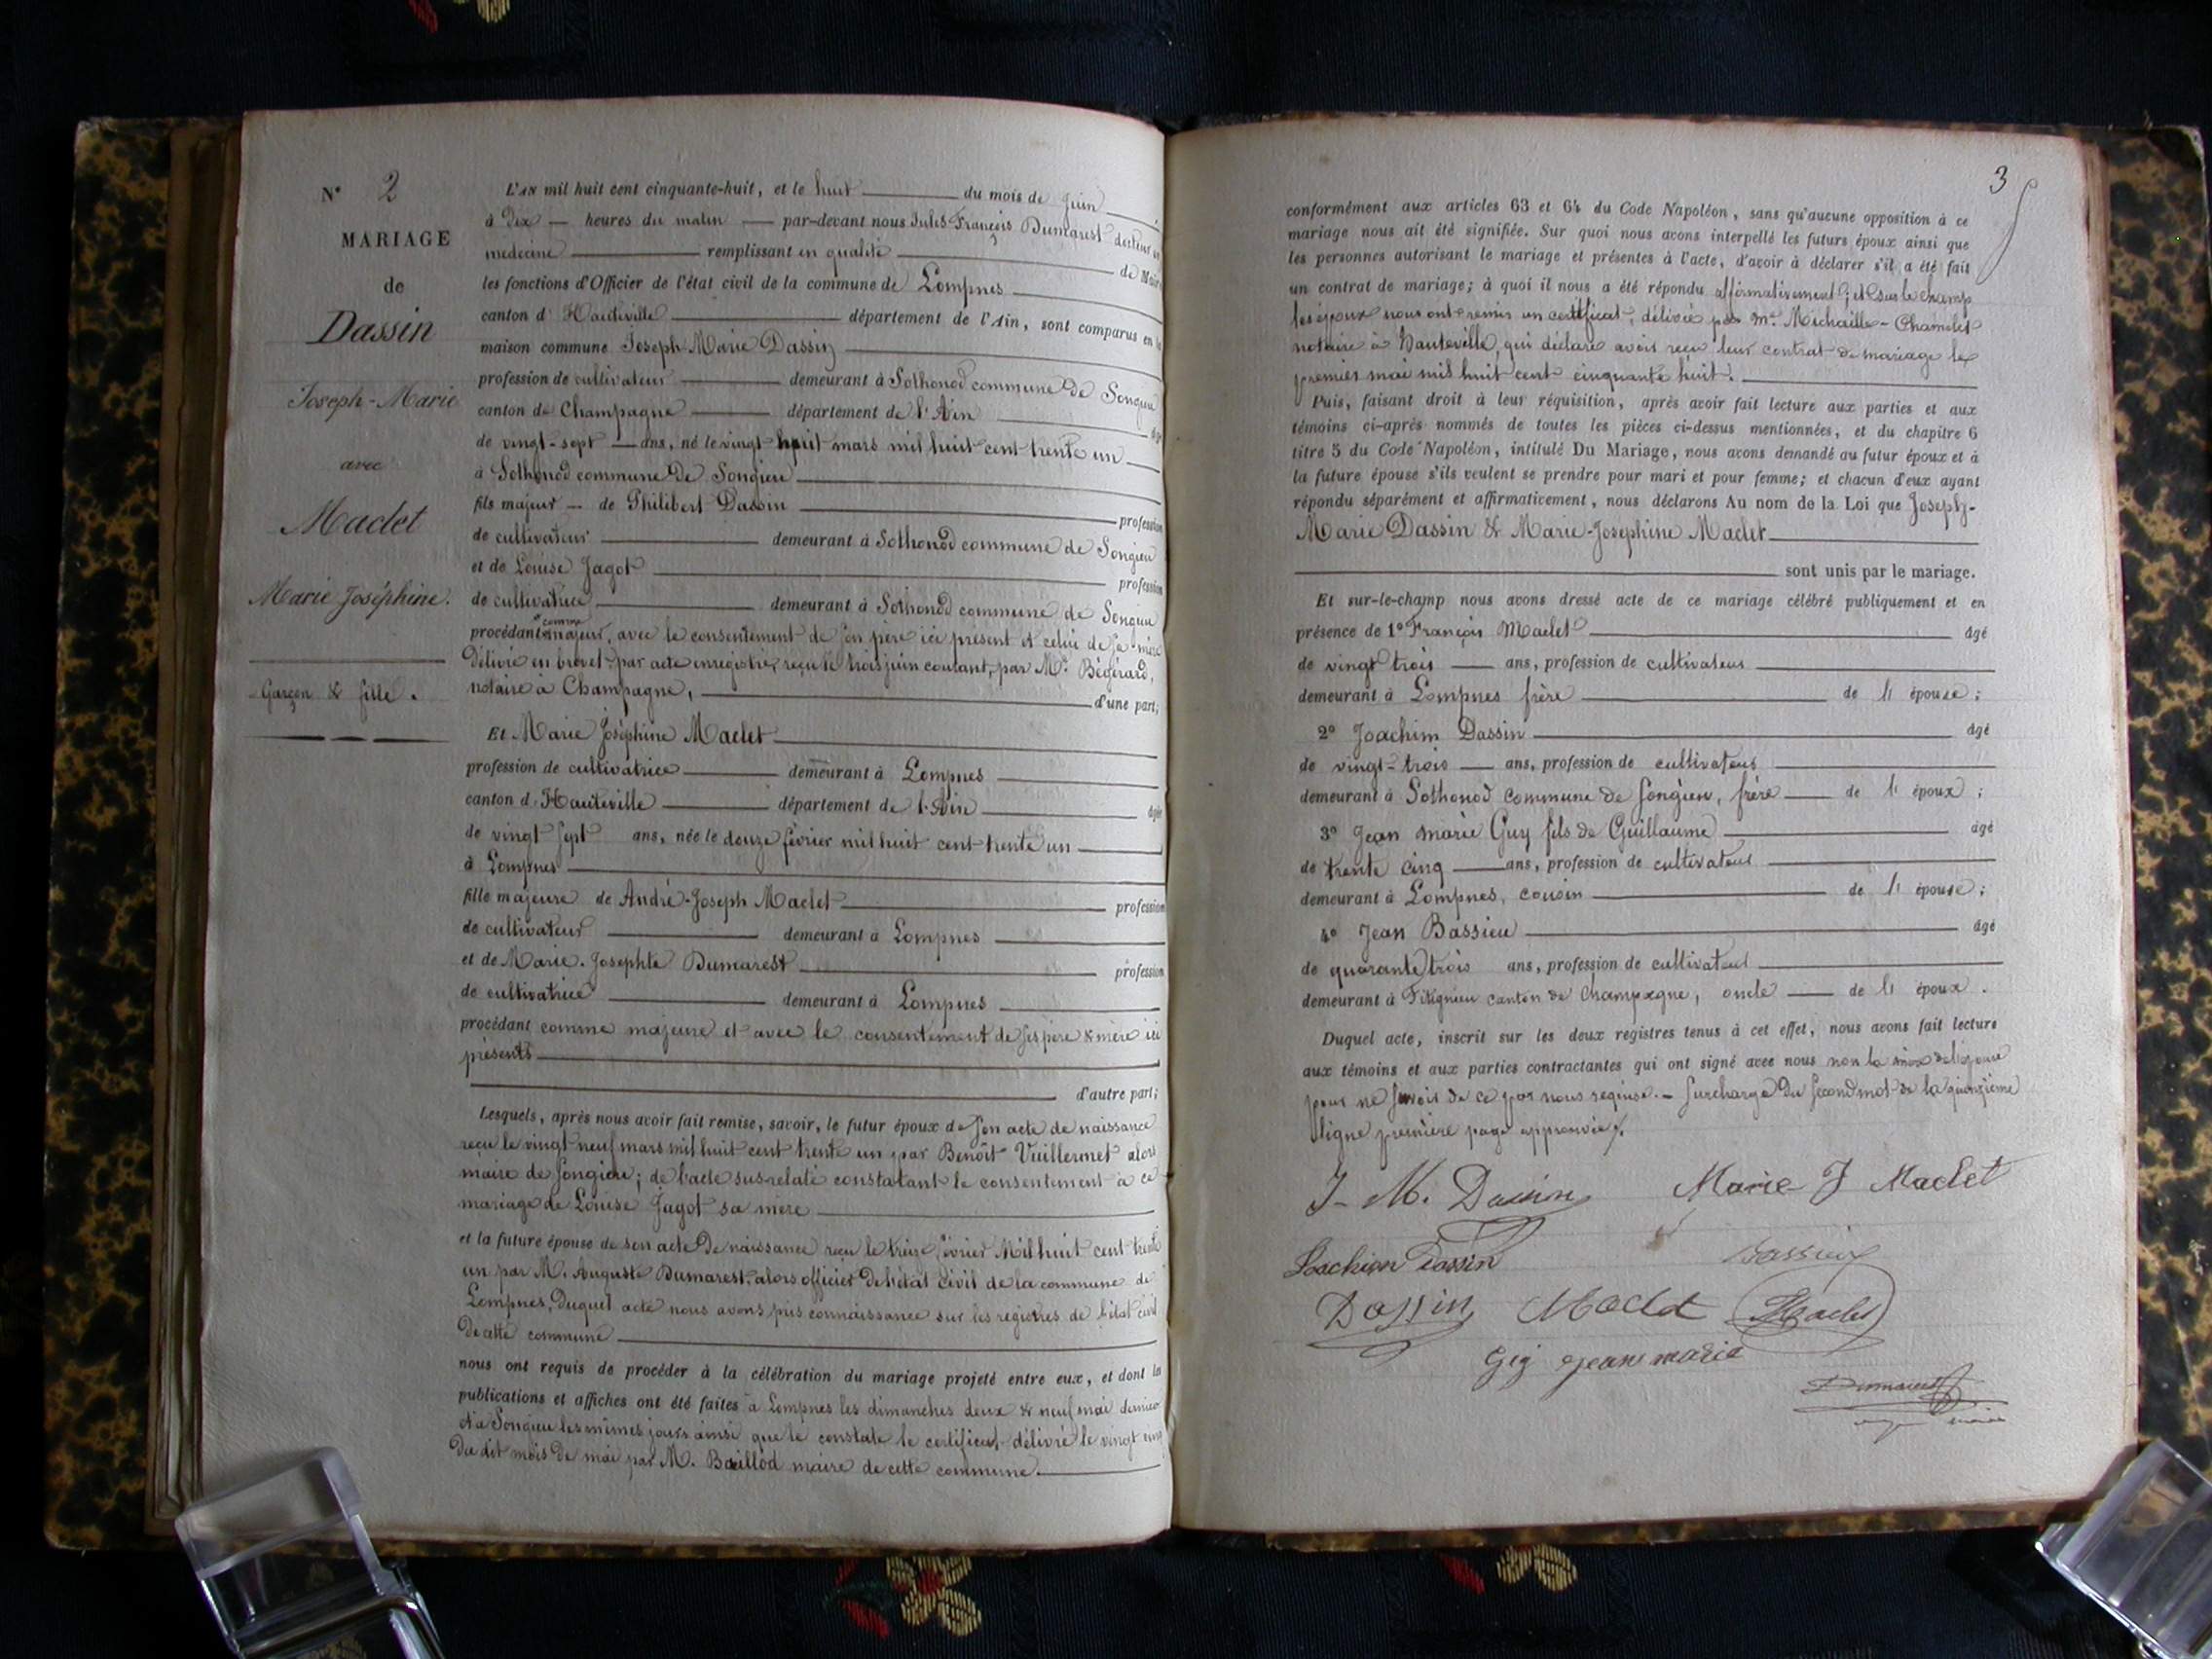 N° 2
MARIAGE
de
Dassin
Joseph-Marie
avec
Maclet
Marie Joséphine.
Garçon & fille.
L'AN mil huit cent cinquante-huit, et le huit du mois de juin
à Dix heures du matin par-devant nous Jules-François Dumarest docteur en
médecine remplissant en qualité de Maire
les fonctions d'Officier de l'état civil de la commune de Lompnes
canton d' Hauteville département de l'Ain, sont comparus en la
maison commune Joseph-Marie Dassin
profession de cultivateur demeurant à Sothonod commune de Songieu
canton de Champagne département de l'Ain âgé
de vingt-sept ans, né le vingt huit mars mil huit cent trente un
à Sothonod commune de Songieu
fils majeur de Philibert Dassin profession
de cultivateur demeurant à Sothonod commune de Songieu
et de Louise Jagot profession
de cultivatrice demeurant à Sothonod commune de Songieu
procédant comme majeur, avec le consentement de son père ici présent et celui de sa mère
délivré en brevet par acte enregistré, reçu le trois juin courant, par Me Bégérard,
notaire à Champagne, d'une part;
Et Marie Joséphine Maclet
profession de cultivatrice demeurant à Lompnes
canton d' Hauteville département de l'Ain âgée
de vingt sept ans, née le douze février mil huit cent trente un
à Lompnes
fille majeure de André-Joseph Maclet profession
de cultivateur demeurant à Lompnes
et de Marie-Josephte Dumarest profession
de cultivatrice demeurant à Lompnes
procédant comme majeure et avec le consentement de ses père & mère ici
présents
d'autre part;
Lesquels, après nous avoir fait remise, savoir, le futur époux de son acte de naissance
reçu le vingt neuf mars mil huit cent trente un par Benoît Vuillermet alors
maire de Songieu; de l'acte sus-relaté constatant le consentement à ce
mariage de Louise Jagot sa mère
et la future épouse de son acte de naissance reçu le treize février Mil huit cent trente
un par M. Auguste Dumarest, alors officier de l'état civil de la commune de
Lompnes, duquel acte nous avons pris connaissance sur les registres de l'état civil
de cette commune
nous ont requis de procéder à la célébration du mariage projeté entre eux, et dont les
publications et affiches ont été faites à Lompnes les dimanches deux & neuf mai dernier
et à Songieu les mêmes jours ainsi que le constate le certificat délivré le vingt cinq
du dit mois de mai par M. Baillod maire de cette commune.
3
conformément aux articles 63 et 64 du Code Napoléon, sans qu'aucune opposition à ce
mariage nous ait été signifiée. Sur quoi nous avons interpellé les futurs époux ainsi que
les personnes autorisant le mariage et présentes à l'acte, d'avoir à déclarer s'il a été fait
un contrat de mariage; à quoi il nous a été répondu affirmativement; et sur le champ
les époux nous ont remis un certificat, délivré par Me Michaille-Chamelet
notaire à Hauteville, qui déclare avoir reçu leur contrat de mariage le
premier mai mil huit cent cinquante huit.
Puis, faisant droit à leur réquisition, après avoir fait lecture aux parties et aux
témoins ci-après nommés de toutes les pièces ci-dessus mentionnées, et du chapitre 6
titre 5 du Code Napoléon, intitulé Du Mariage, nous avons demandé au futur époux et à
la future épouse s'ils veulent se prendre pour mari et pour femme; et chacun d'eux ayant
répondu séparément et affirmativement, nous déclarons Au nom de la Loi que Joseph-
Marie Dassin & Marie-Joséphine Maclet
sont unis par le mariage.
Et sur-le-champ nous avons dressé acte de ce mariage célébré publiquement et en
présence de 1° François Maclet âgé
de vingt trois ans, profession de cultivateur
demeurant à Lompnes frère de l' épouse;
2° Joachim Dassin âgé
de vingt-trois ans, profession de cultivateur
demeurant à Sothonod commune de Songieu, frère de l' époux;
3° Jean Marie Guy fils de Guillaume âgé
de trente cinq ans, profession de cultivateur
demeurant à Lompnes, cousin de l' épouse;
4° Jean Bassieu âgé
de quarante trois ans, profession de cultivateur
demeurant à Fitignieu canton de Champagne, oncle de l' époux.
Duquel acte, inscrit sur les deux registres tenus à cet effet, nous avons fait lecture
aux témoins et aux parties contractantes qui ont signé avec nous non la mère de l'épouse
pour ne savoir de ce par nous requise. - Surcharge du second mot de la quinzième
ligne première page approuvée.
J-M. Dassin
Marie J Maclet
Joachim Dassin
Bassieu
Dassin
Maclet
Maclet
Guy Jean marie
Dumarest